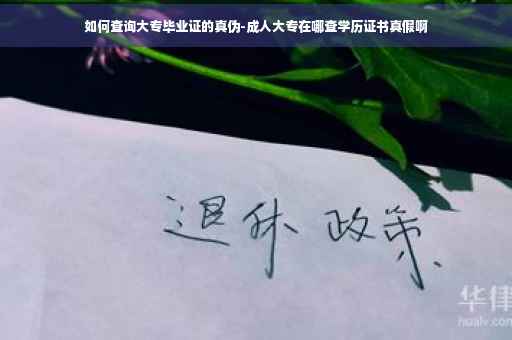 如何查询大专毕业证的真伪-成人大专在哪查学历证书真假啊
退休 政策
华律
hualv.com